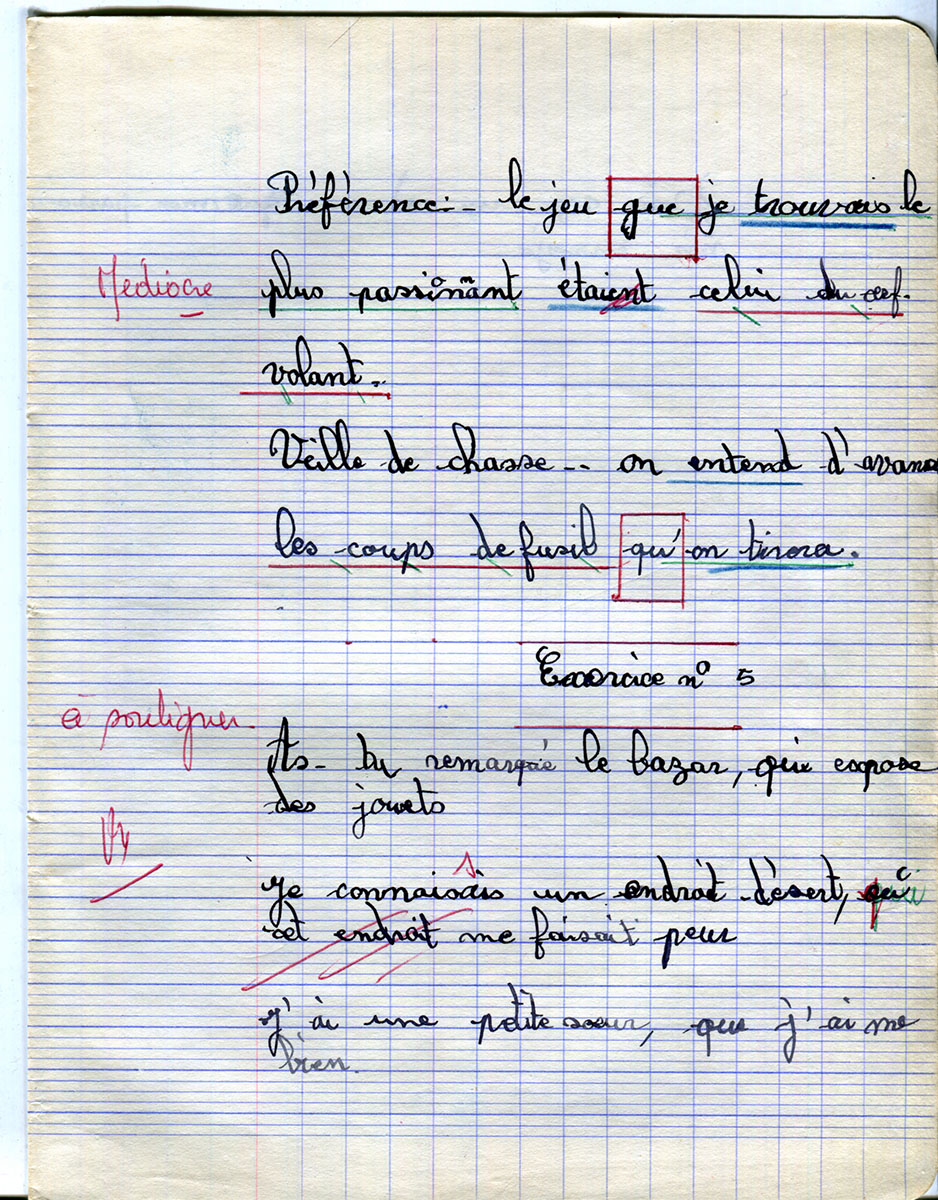 Préférence:- le jeu que je trouvais le
Médiocre plus passionnant étaient celui du cerf-
volant..
Veille de chasse -- on entend d'avance
les coups de fusil qu'on tirera.
Exercice n° 5
à souligner
As-tu remarqué le bazar, qui expose
des jouets
Vy
Je connaissais un endroit désert, qui
cet endroit me faisait peur
J'ai une petite soeur, que j'ai me
bien.